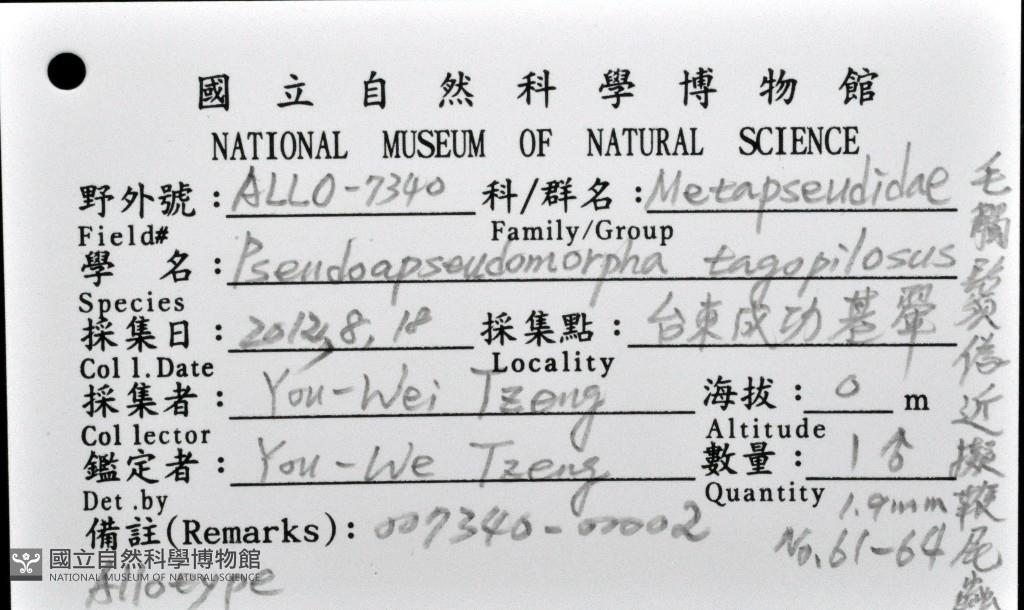 國立自然科學博物館
NATIONAL MUSEUM OF NATURAL SCIENCE
野外號：ALLO-7340 科/群名：Metapseudidae
Field# Family/Group
學 名：Pseudoapseudomorpha tagopilosus
Species
採集日：2012,8,18 採集點：台東成功基翬
Coll.Date Locality
採集者：You-Wei Tzeng 海拔：0 m
Collector Altitude
鑑定者：You-We Tzeng 數量：1♂
Det.by Quantity
1.9mm
備註(Remarks)：007340-00002
No.61-64
Allotype
毛觸鬚 近擬鞭尾蟲
國立自然科學博物館
NATIONAL MUSEUM OF NATURAL SCIENCE